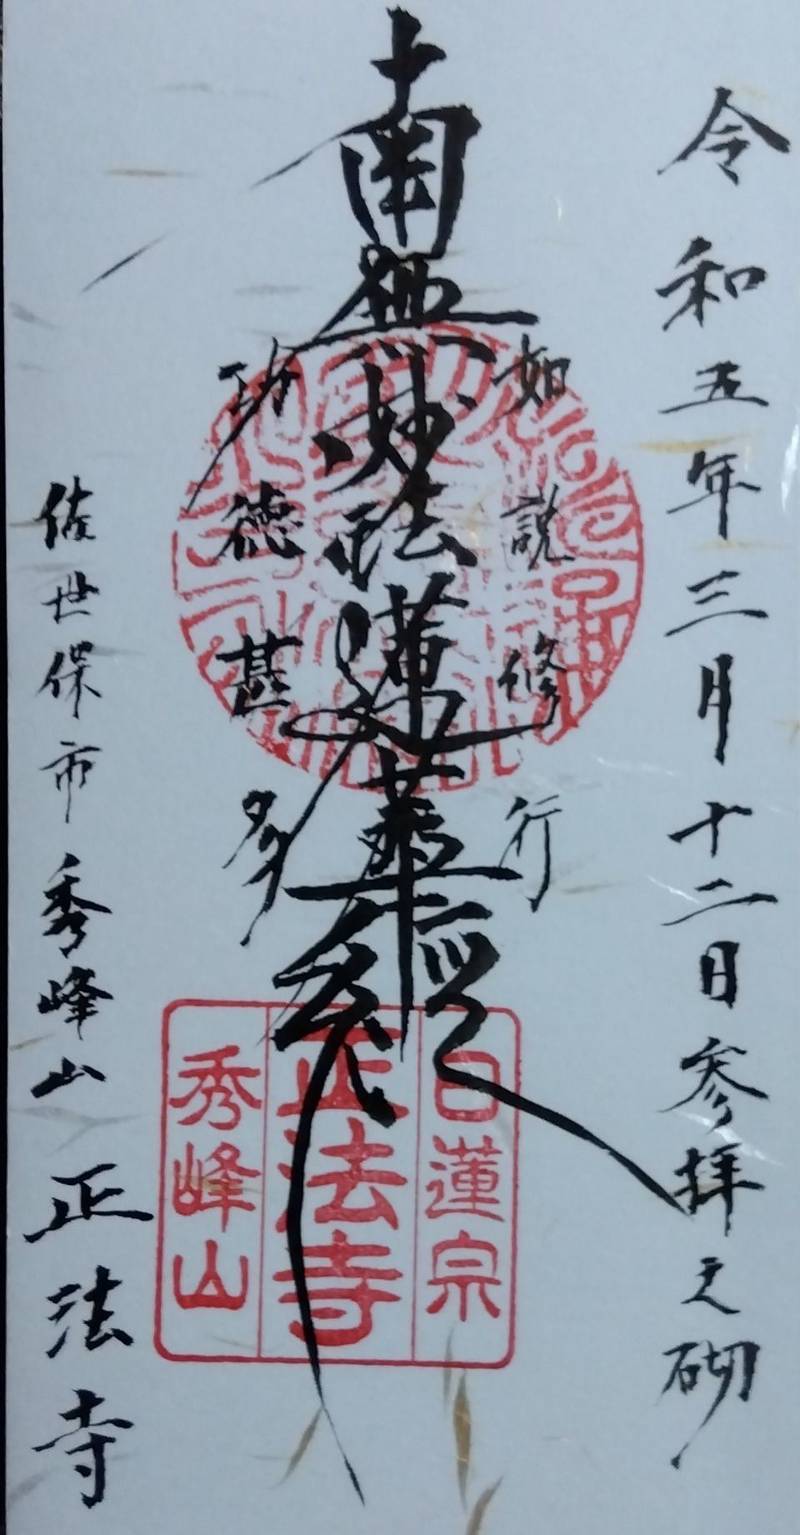 令和五年三月十二日参拝之砌
如説修行
南無妙法蓮華經
功徳甚多
佐世保市 秀峰山 正法寺
日蓮宗
正法寺
秀峰山